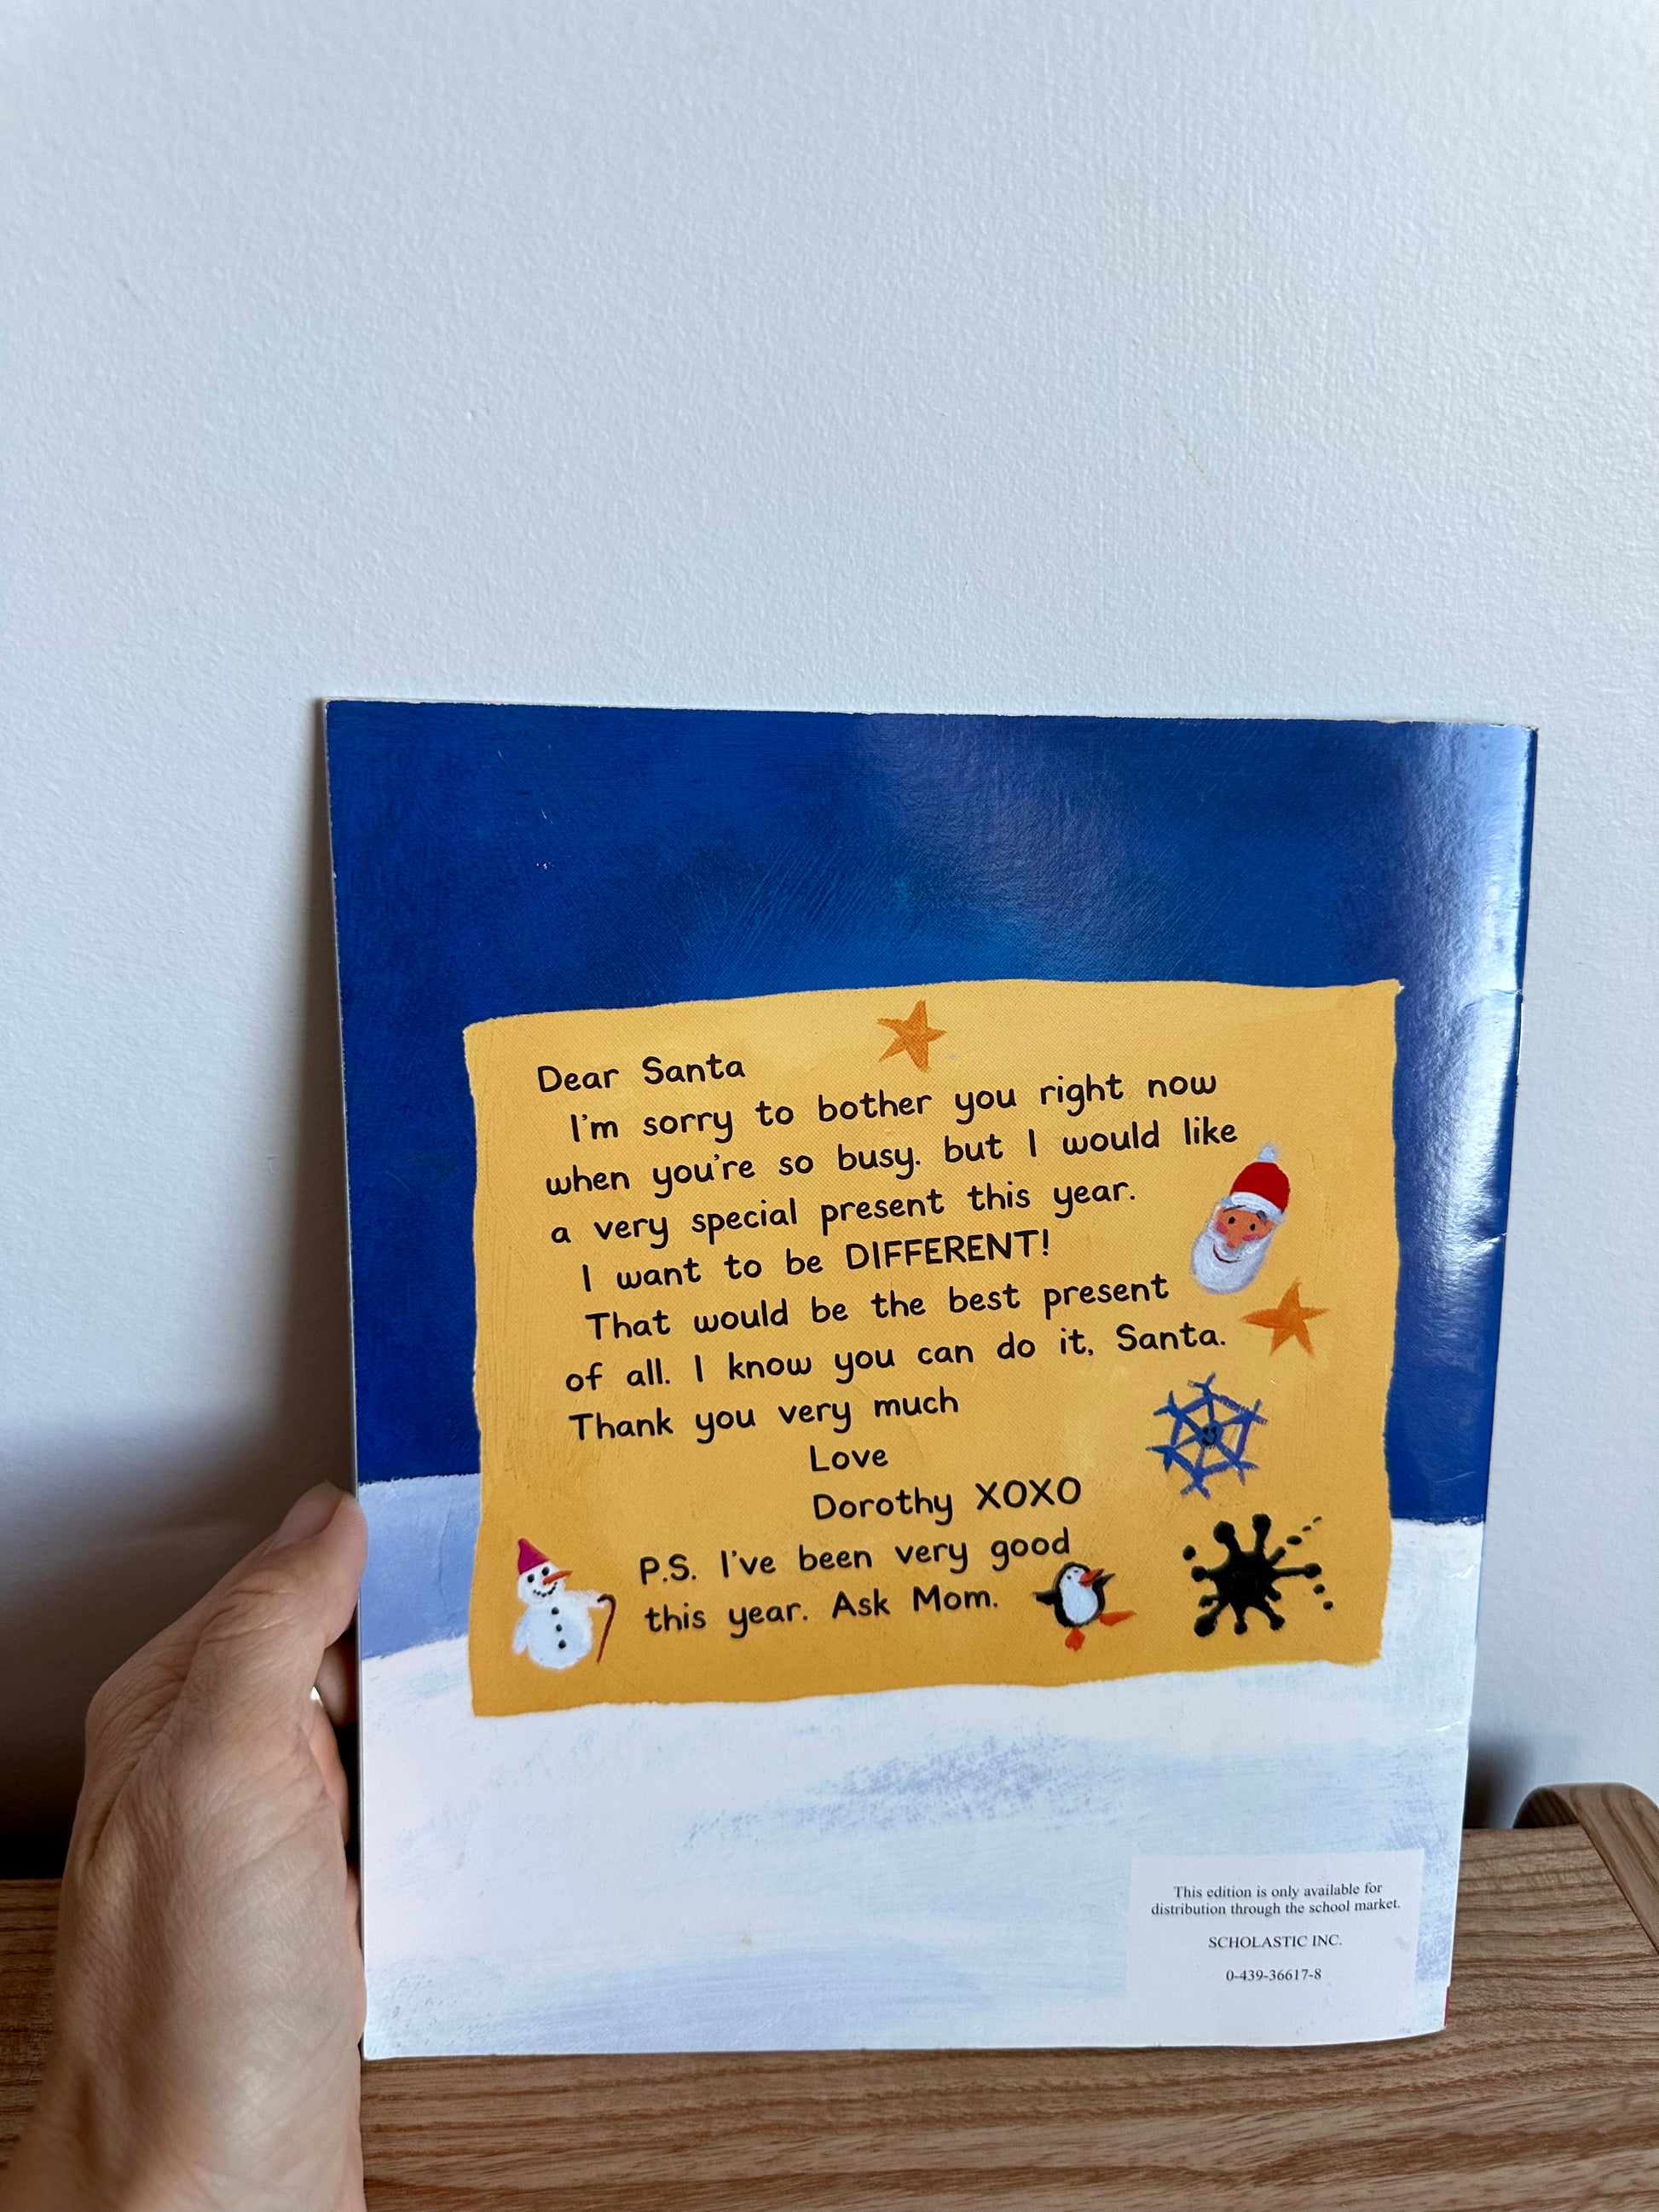 Dear Santa
I'm sorry to bother you right now
when you're so busy. but I would like
a very special present this year.
I want to be DIFFERENT!
That would be the best present
of all. I know you can do it, Santa.
Thank you very much
Love
Dorothy XOXO
P.S. I've been very good
this year. Ask Mom.
This edition is only available for
distribution through the school market.
SCHOLASTIC INC.
0-439-36617-8